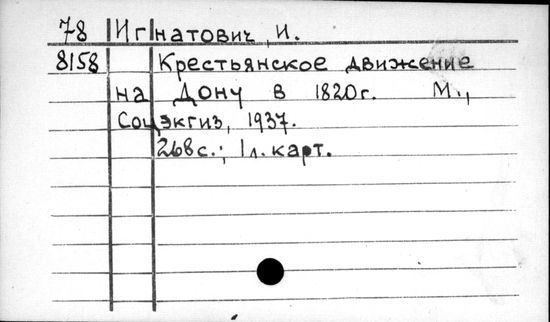 78 Игнатович, И.
8158 Крестьянское движение
на Дону в 1820г. М.,
Соцэкгиз, 1937.
268с.; 1л.карт.